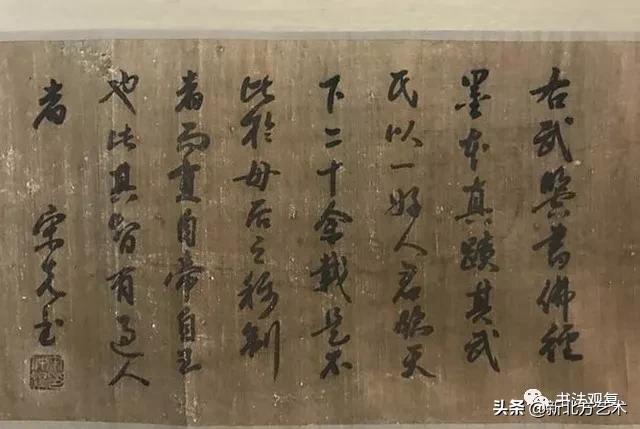 右武曌書佛經
墨本真蹟其武
氏以一婦人君臨天
下二十余載是不
比於母后之稱制
者而直自帝自王
也此其智有過人
者 宋克書
书法观复
头条@新北方艺术